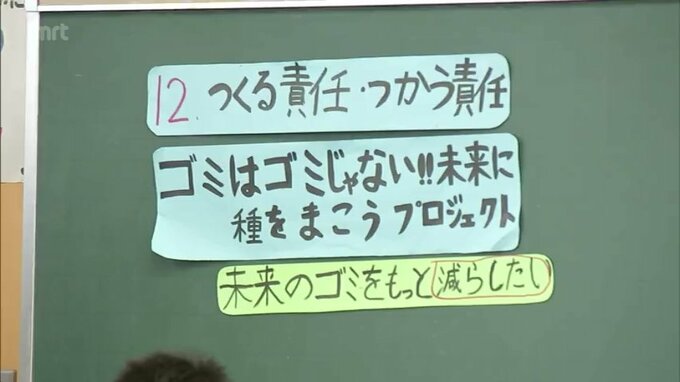 mrt
12. つくる責任・つかう責任
ゴミはゴミじゃない!!未来に
種をまこうプロジェクト
未来のゴミをもっと減らしたい